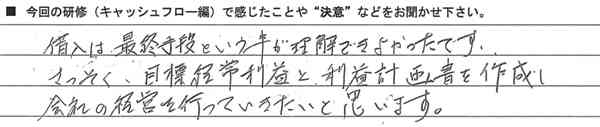 ■ 今回の研修（キャッシュフロー編）で感じたことや“決意”などをお聞かせ下さい。
借入は、最終手段という事が理解できよかったです。
さっそく、目標経常利益と、利益計画書を作成し
会社の経営を行っていきたいと思います。